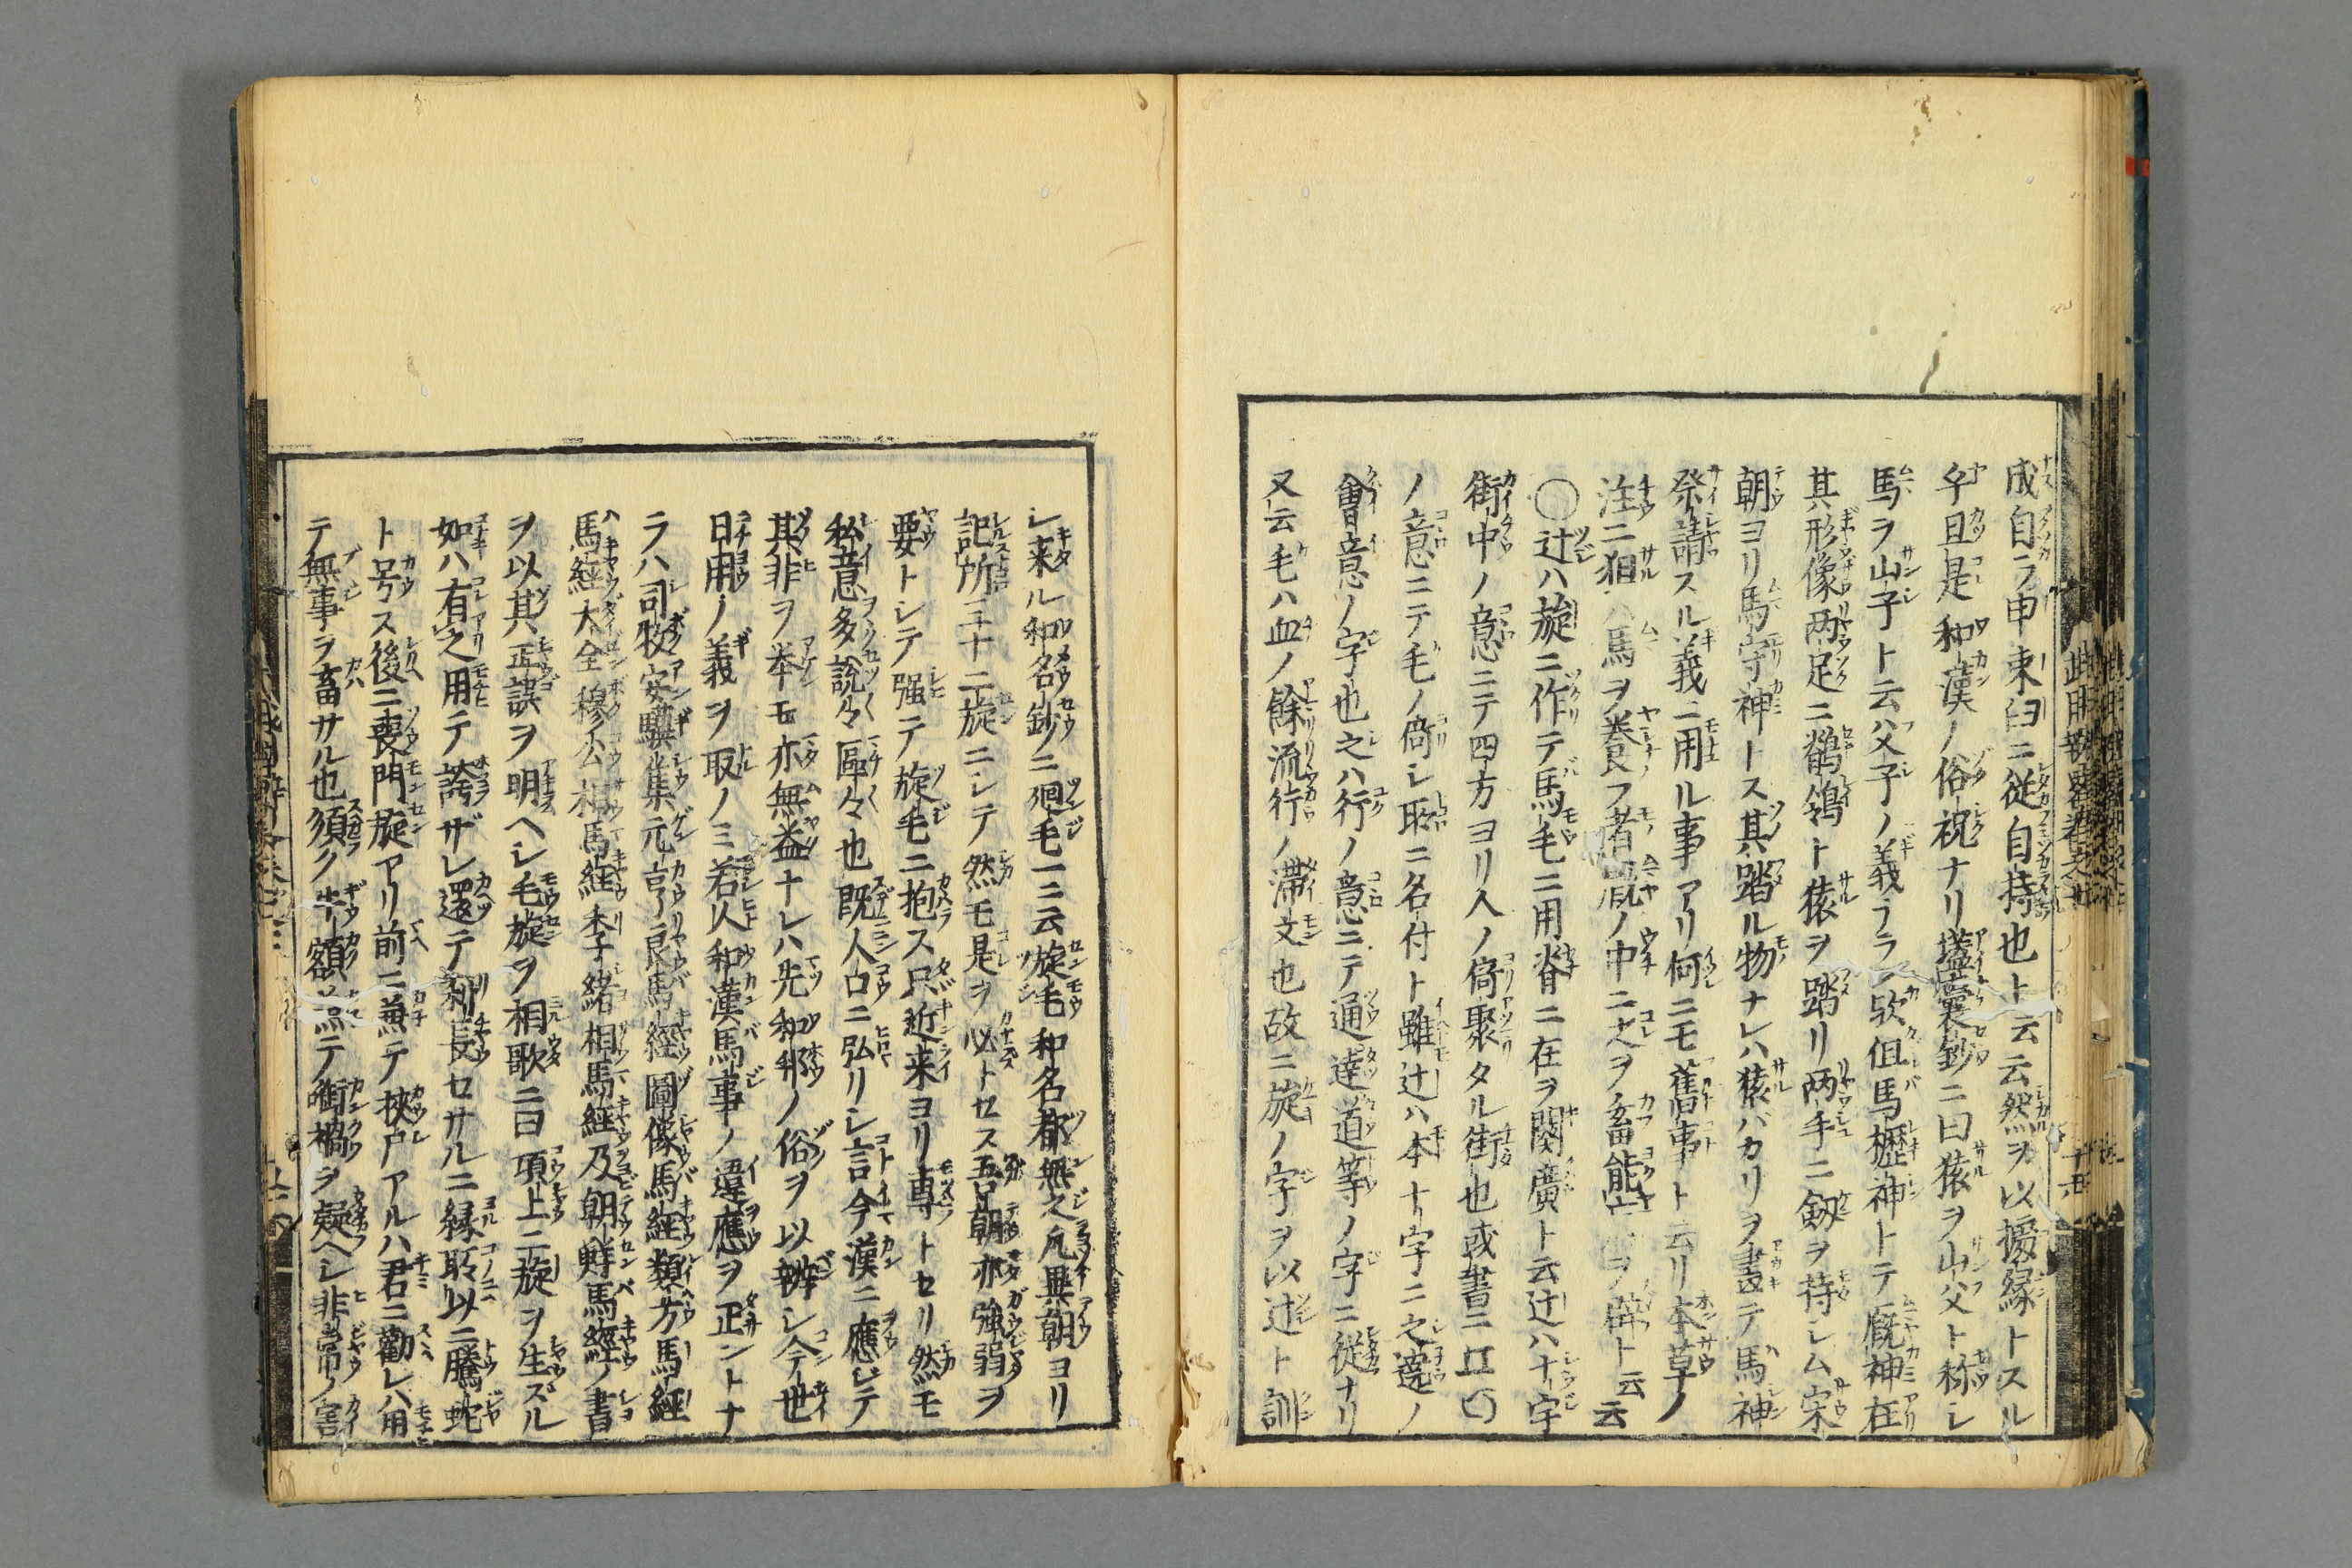 成自ラ申束臼ニ従自持也ト云云然ヲ以援縁トスル
乎且是和漢ノ俗祝ナリ壒囊鈔ニ曰猿ヲ山父ト称シ
馬ヲ山子ト云ハ父子ノ義ナラン欤但馬櫪神トテ厩神在
其形像两足ニ鶺鴒ト猿ヲ踏リ两手ニ劔ヲ持シム宋
朝ヨリ馬守神トス其踏ル物ナレハ猿バカリヲ畫テ馬神
祭請スル義ニ用ル事アリ何ニモ舊事ト云リ本草ノ
注ニ狙ハ馬ヲ養フ者厩ノ中ニ之ヲ畜能 ヲ辟ト云云
◯辻ハ旋ニ作テ馬毛ニ用脊ニ在ヲ関廣ト云辻ハ十字
街中ノ意ニテ四方ヨリ人ノ倚聚タル街也或書ニ
ノ意ニテ毛ノ倚シ所ニ名付ト雖辻ハ本十字ニ之遶ノ
會意ノ字也之ハ行ノ意ニテ通達道等ノ字ニ従ナリ
又云毛ハ血ノ餘流行ノ滞文也故ニ旋ノ字ヲ以辻ト訓
シ来ル和名鈔ニ廻毛一ニ云旋毛和名都無之凡異朝ヨリ
記所三十二旋ニシテ然モ是ヲ必トセス吾朝亦強弱ヲ
要トシテ强テ旋毛ニ抱ス只近来ヨリ專トセリ然モ
私意多說々區々也既人口ニ弘リシ言今漢ニ應シテ
其非ヲ举モ亦無益ナレハ先和邦ノ俗ヲ以辨シ今世
日用ノ義ヲ取ノミ若人和漢馬事ノ違應ヲ正ントナ
ラハ司牧安驥集元亨良馬經圖像馬經類方馬經
馬經大全穆公相馬経李子緒相馬經及朝鮮馬經ノ書
ヲ以其正訣ヲ明ヘシ毛旋ヲ相歌ニ曰項上ニ旋ヲ生スル
如ハ有之用テ誇ザレ還テ利長セサルニ縁所以ニ騰蛇
ト号ス後ニ喪門旋アリ前ニ兼テ挾戸アルハ君ニ勸レハ用
テ無事ラ畜サル也須ク牛額并テ銜禍ヲ疑ヘシ非常ノ害